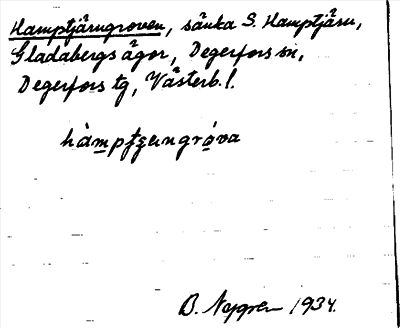 Hamptjärngroven, sänka S. Hamptjärn,
Gladabergs ägor, Degerfors sn,
Degerfors tg, Västerb. l.
B. Nygren 1934.